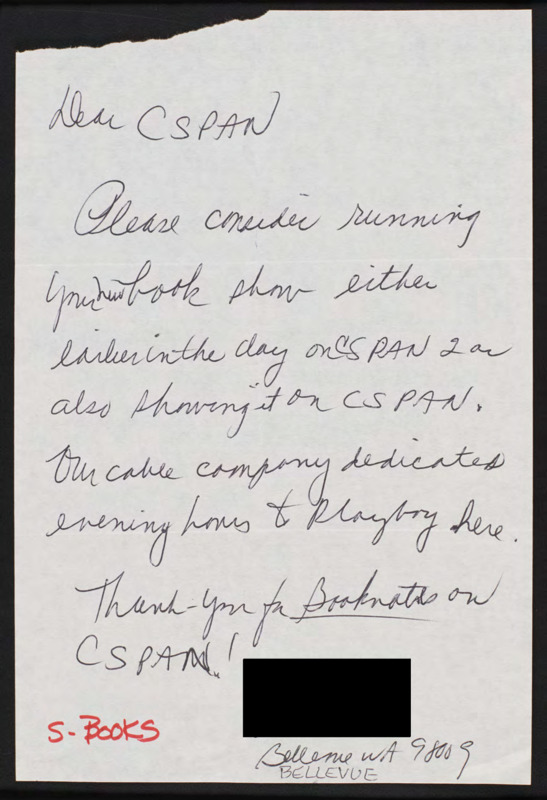 Dear CSPAN
Please consider running
your new book show either
earlier in the day on CSPAN 2 or
also showing it on CSPAN.
Our cable company dedicates
evening hours to Playboy here.
Thank-you for Booknotes on
CSPAN!
S-BOOKS
Bellevue WA 98009
BELLEVUE